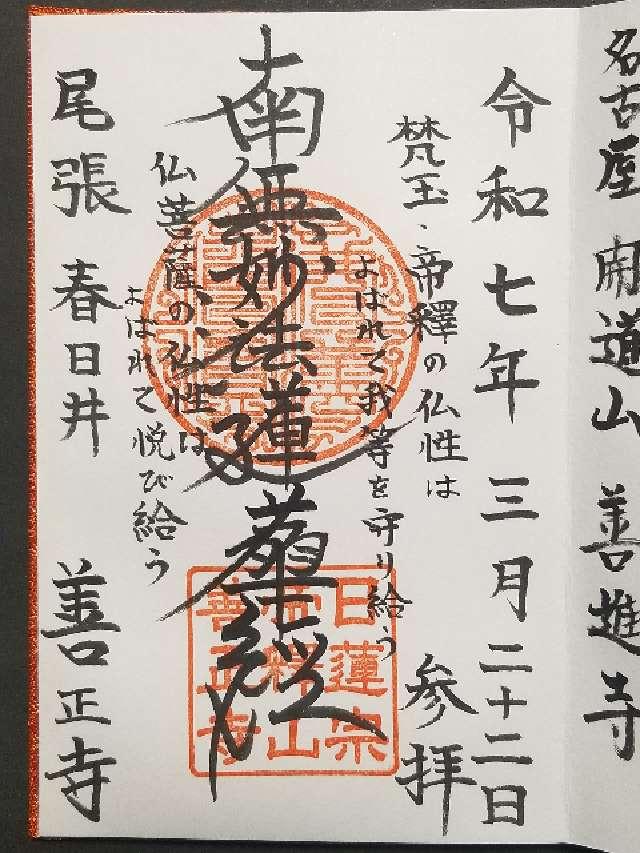 名古屋 開道山 善進寺
令和七年 三月二十二日
参拝
梵王・帝釋の仏性は
よばれて我等を守り給う
南無妙法蓮華経
仏菩薩の仏性は
よばれて悦び給う
尾張 春日井 善正寺
日蓮宗
善正寺